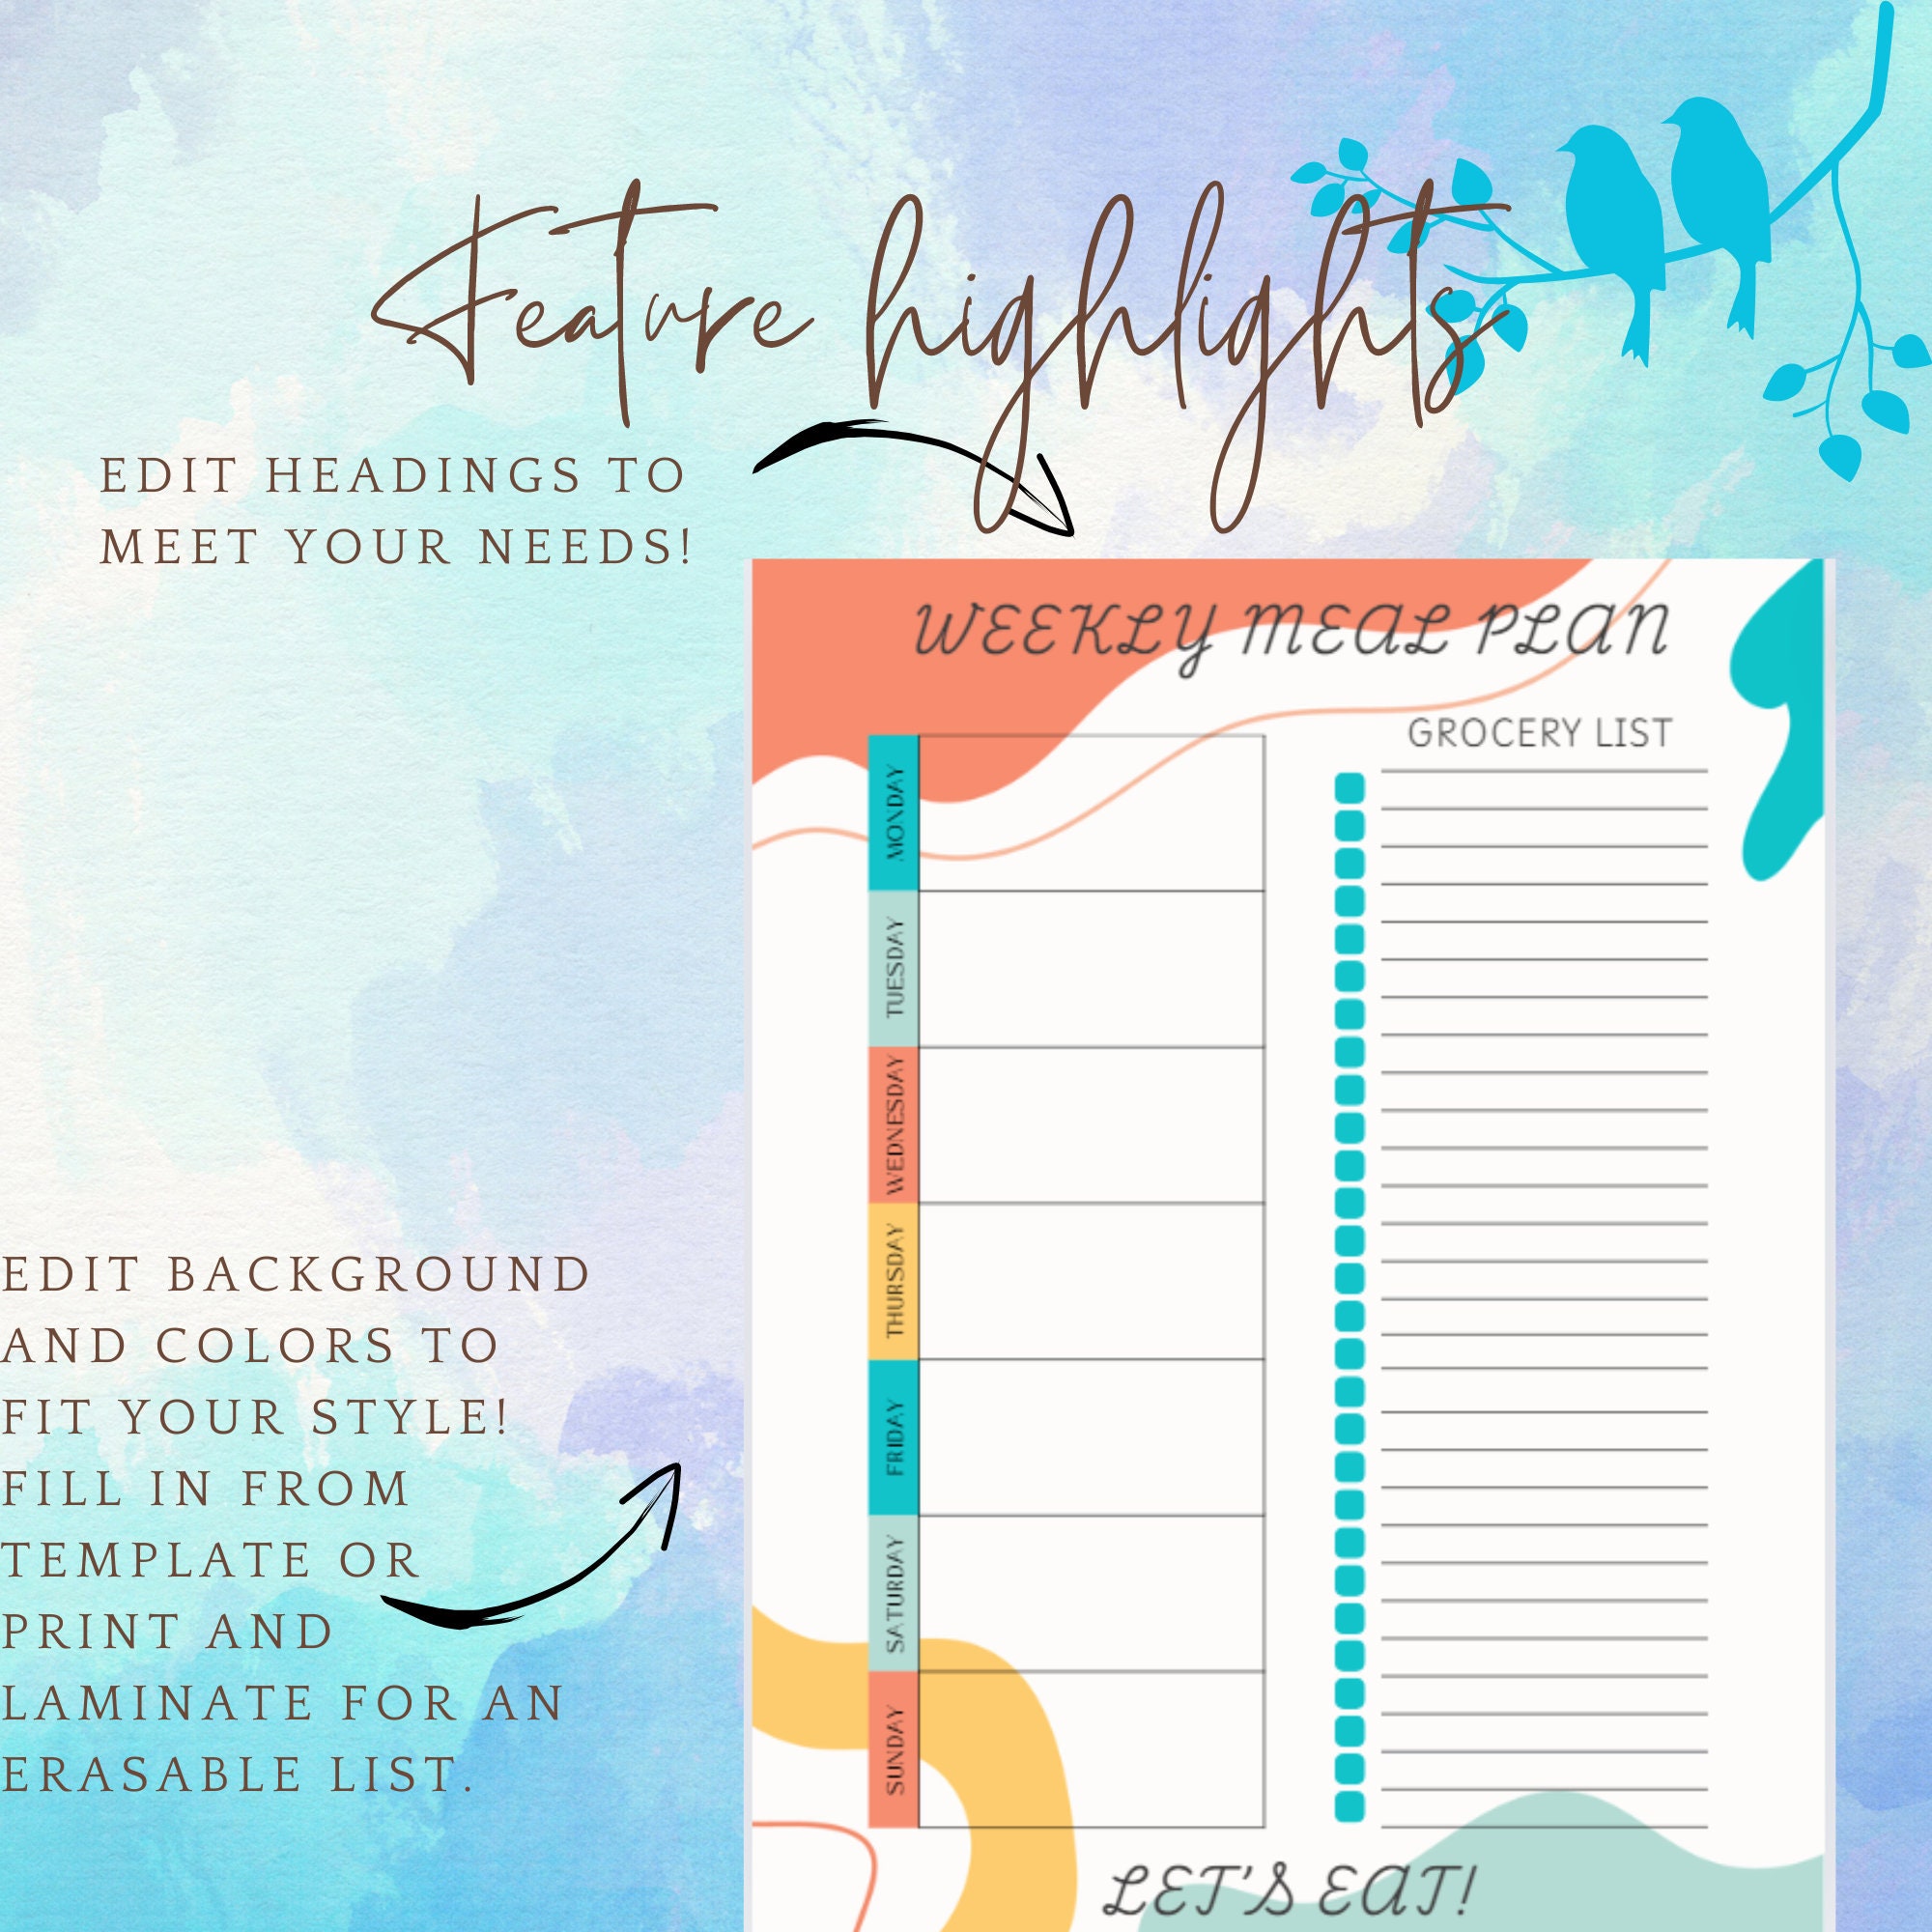 Feature highlights
EDIT HEADINGS TO
MEET YOUR NEEDS!
WEEKLY MEAL PLAN
GROCERY LIST
MONDAY
TUESDAY
WEDNESDAY
THURSDAY
FRIDAY
SATURDAY
SUNDAY
LET'S EAT!
EDIT BACKGROUND
AND COLORS TO
FIT YOUR STYLE!
FILL IN FROM
TEMPLATE OR
PRINT AND
LAMINATE FOR AN
ERASABLE LIST.